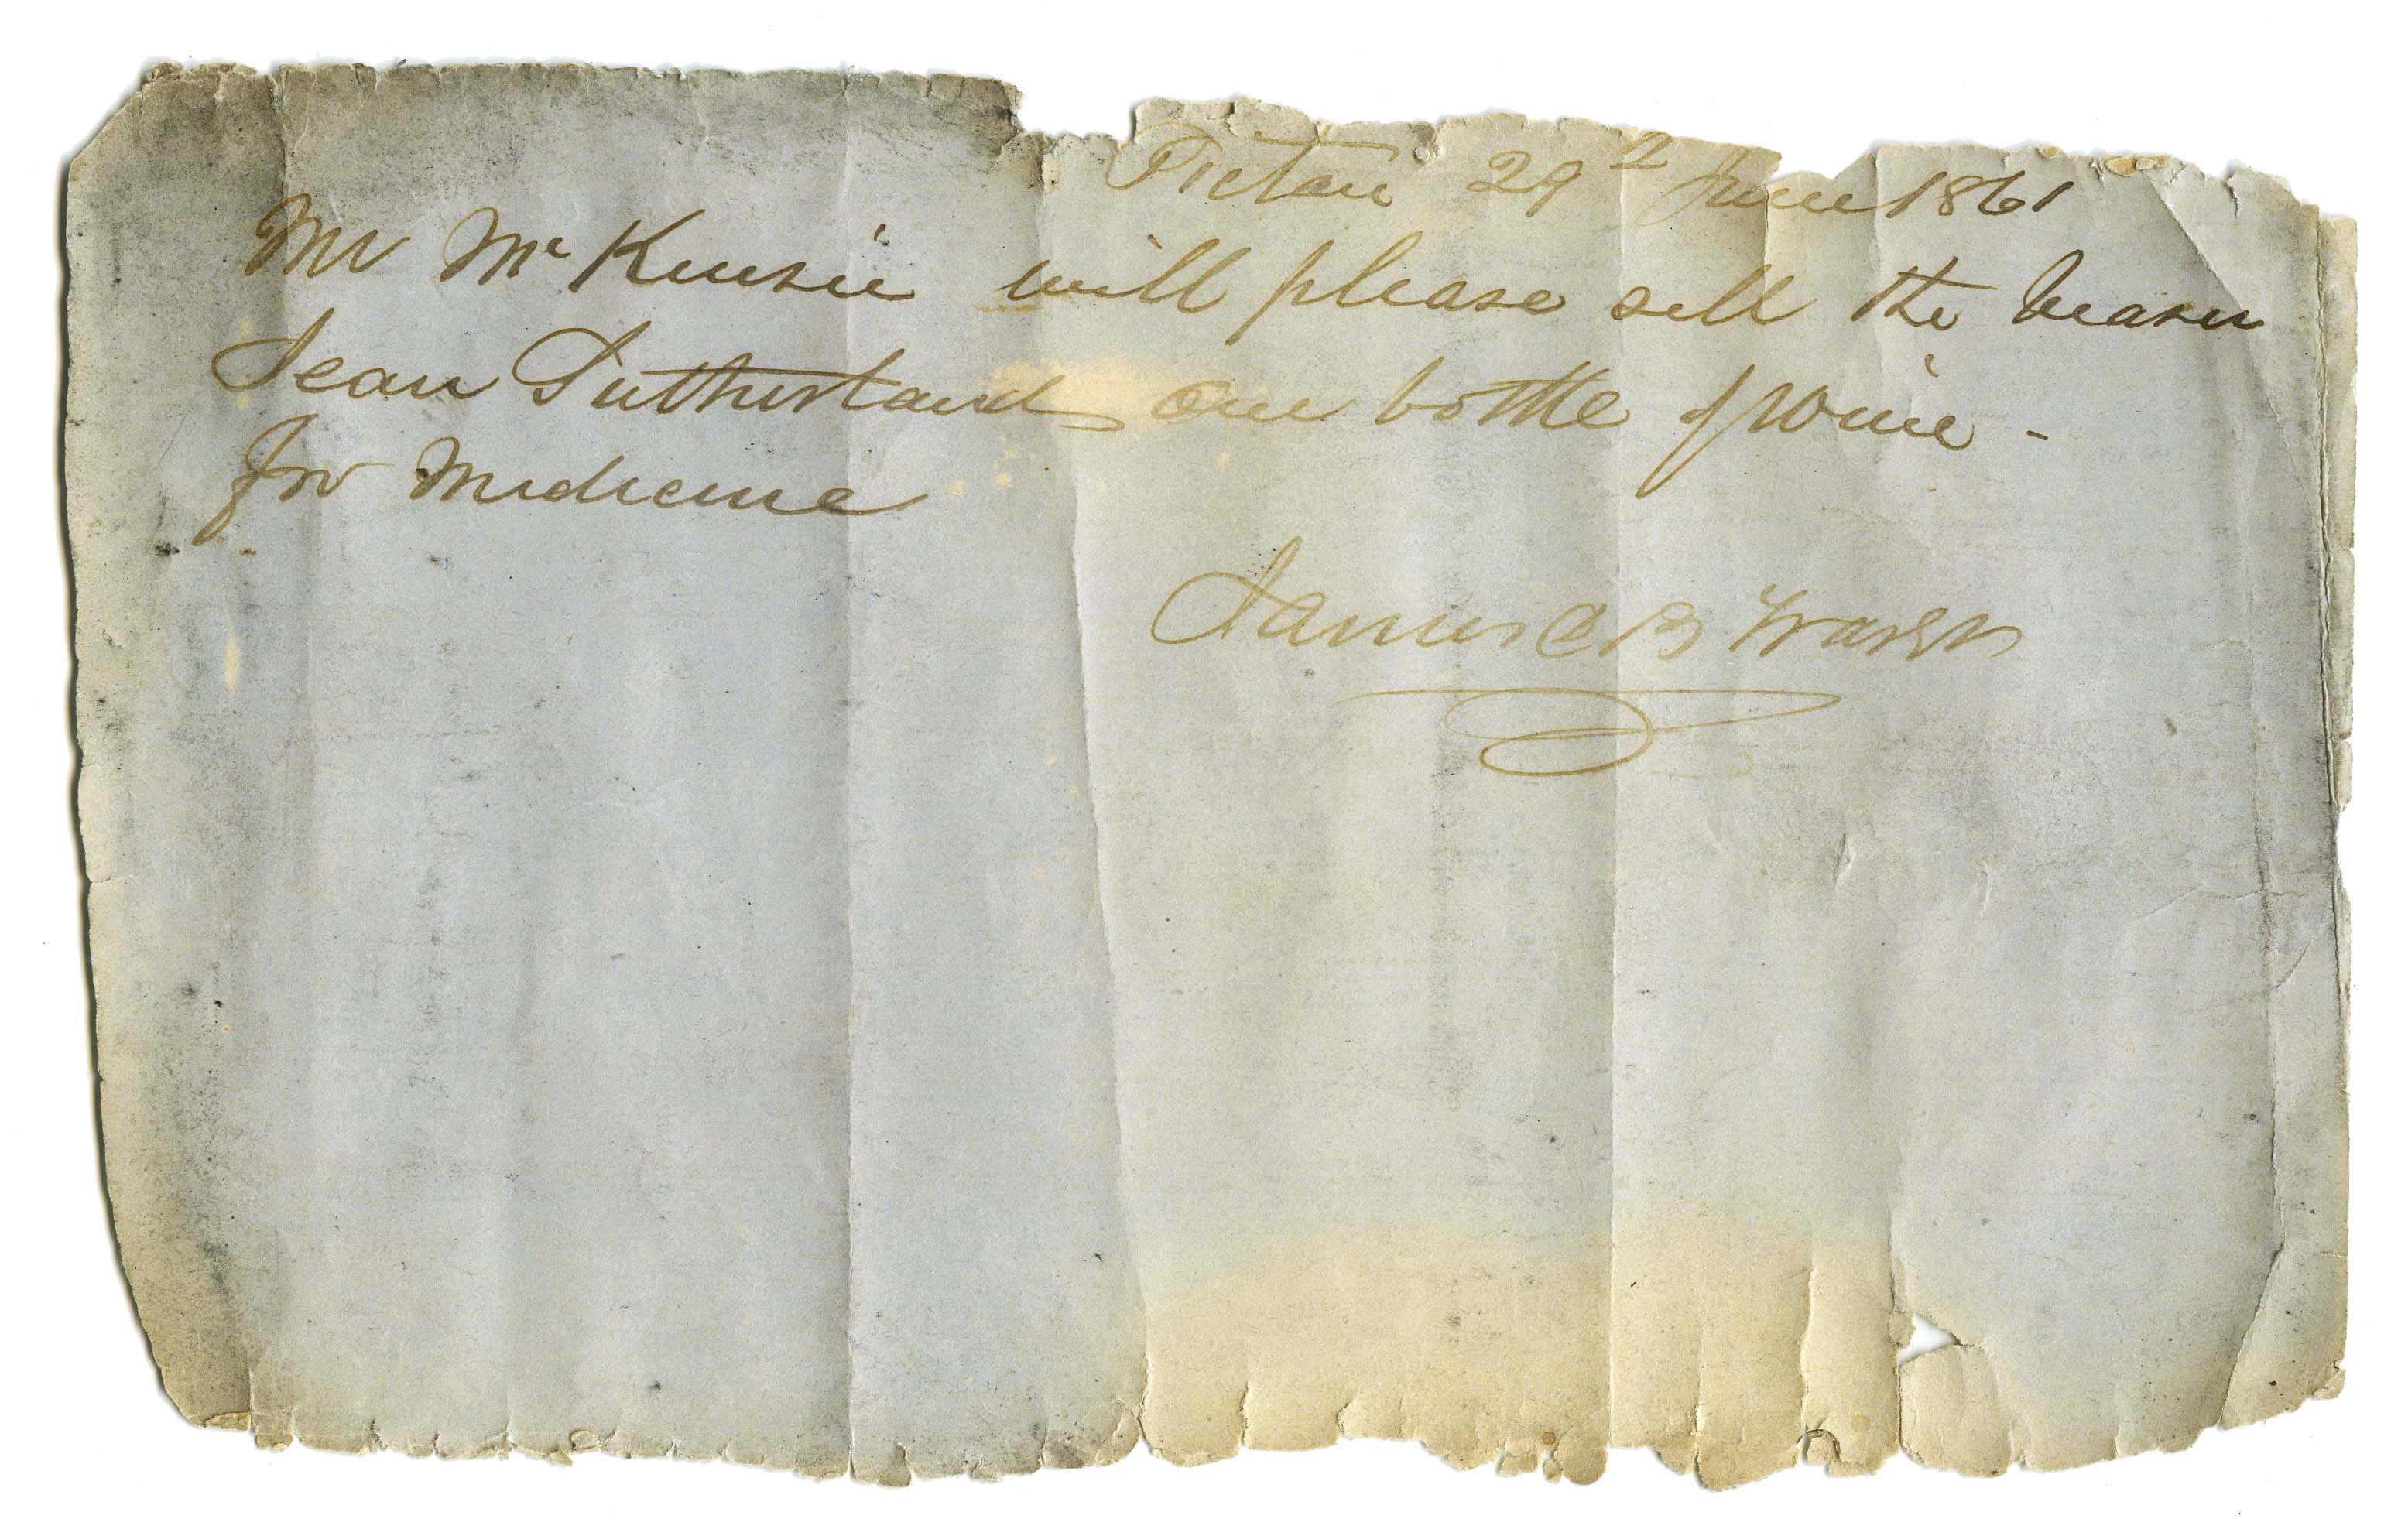 Pictou 29 June 1861
Mr McKenzie will please sell the bearer
Jean Sutherland one bottle of Wine -
for Medicine
James C B Fraser